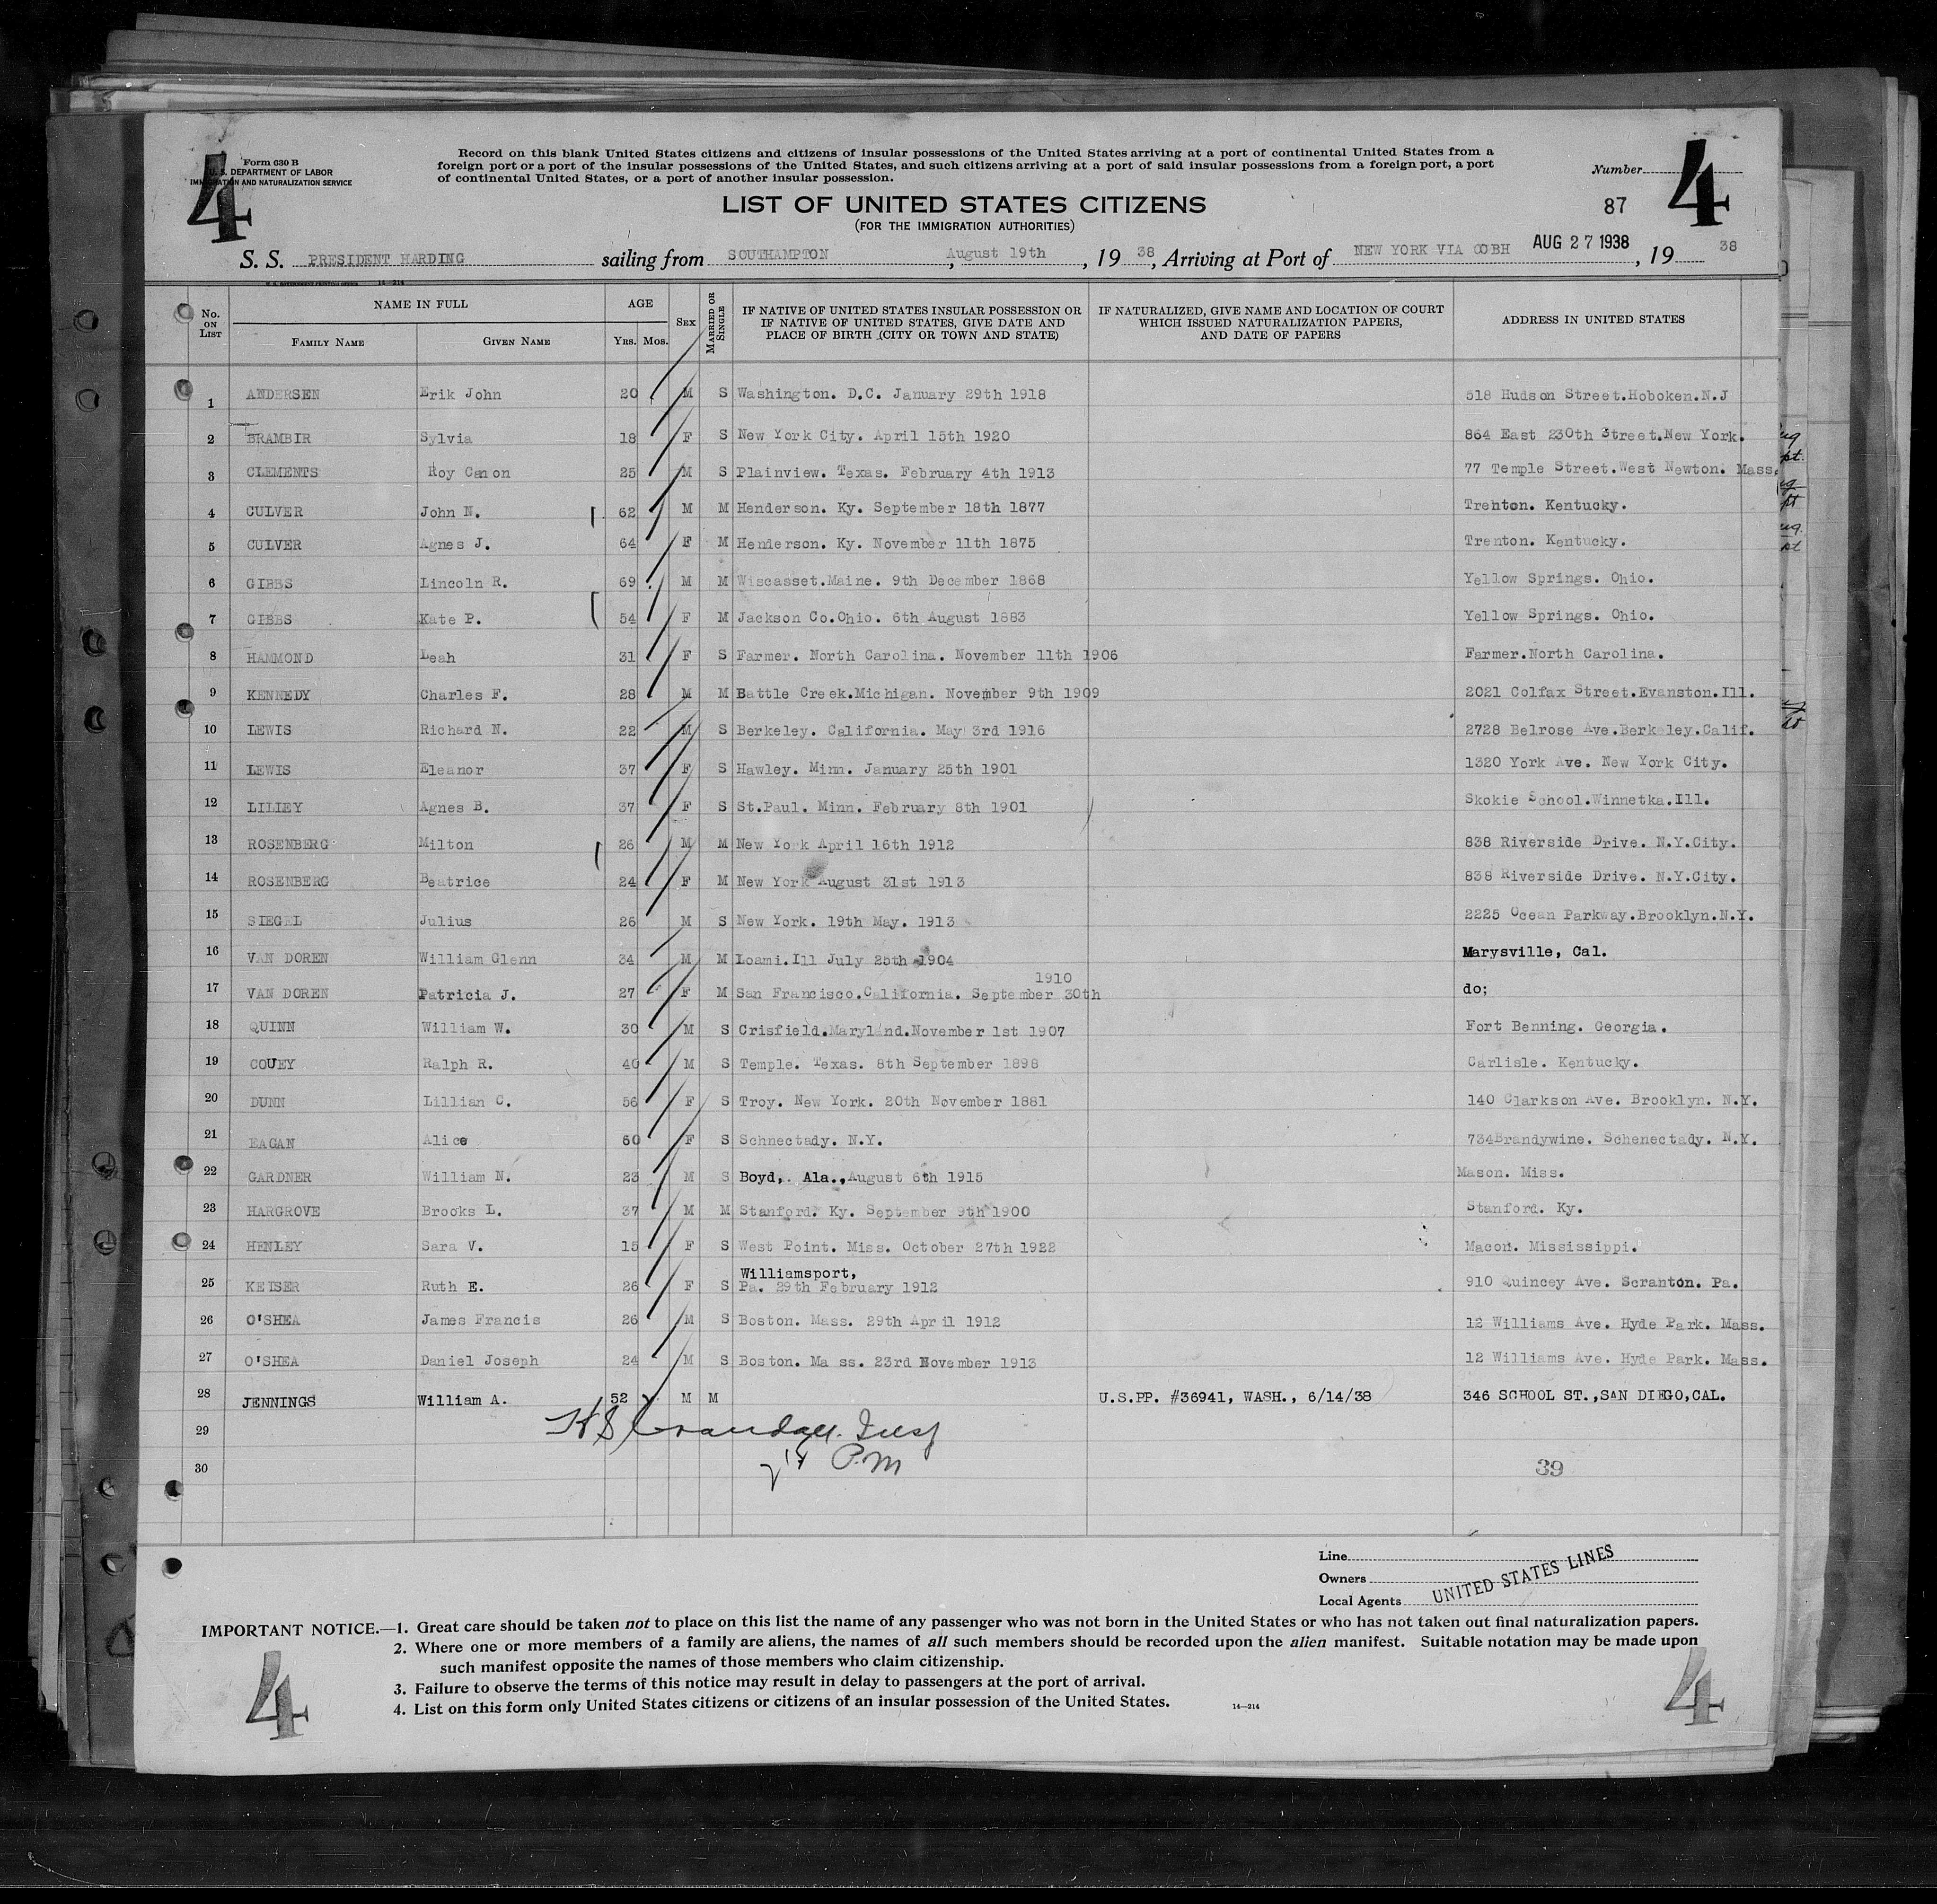 4
Form 630 B
U. S. DEPARTMENT OF LABOR
IMMIGRATION AND NATURALIZATION SERVICE
Record on this blank United States citizens and citizens of insular possessions of the United States arriving at a port of continental United States from a
foreign port or a port of the insular possessions of the United States, and such citizens arriving at a port of said insular possessions from a foreign port, a port
of continental United States, or a port of another insular possession.
Number
4
LIST OF UNITED STATES CITIZENS
87
(FOR THE IMMIGRATION AUTHORITIES)
S. S. PRESIDENT HARDING sailing from SOUTHAMPTON, August 19th, 19 38, Arriving at Port of NEW YORK VIA COBH AUG 27 1938, 19 38
14—214
No. ON LIST NAME IN FULL AGE SEX MARRIED OR SINGLE IF NATIVE OF UNITED STATES INSULAR POSSESSION OR IF NATIVE OF UNITED STATES, GIVE DATE AND PLACE OF BIRTH (CITY OR TOWN AND STATE) IF NATURALIZED, GIVE NAME AND LOCATION OF COURT WHICH ISSUED NATURALIZATION PAPERS, AND DATE OF PAPERS ADDRESS IN UNITED STATES
FAMILY NAME GIVEN NAME YRS. MOS.
1 ANDERSEN Erik John 20 M S Washington. D.C. January 29th 1918 518 Hudson Street.Hoboken.N.J
2 BRAMBIR Sylvia 18 F S New York City. April 15th 1920 864 East 230th Street.New York.
3 CLEMENTS Roy Canon 25 M S Plainview. Texas. February 4th 1913 77 Temple Street.West Newton. Mass.
4 CULVER John N. 62 M M Henderson. Ky. September 18th 1877 Trenton. Kentucky.
5 CULVER Agnes J. 64 F M Henderson. Ky. November 11th 1875 Trenton. Kentucky.
6 GIBBS Lincoln R. 69 M M Wiscasset.Maine. 9th December 1868 Yellow Springs. Ohio.
7 GIBBS Kate P. 54 F M Jackson Co.Ohio. 6th August 1883 Yellow Springs. Ohio.
8 HAMMOND Leah 31 F S Farmer. North Carolina. November 11th 1906 Farmer.North Carolina.
9 KENNEDY Charles F. 28 M M Battle Creek.Michigan. November 9th 1909 2021 Colfax Street.Evanston.Ill.
10 LEWIS Richard N. 22 M S Berkeley. California. May 3rd 1916 2728 Belrose Ave.Berkeley.Calif.
11 LEWIS Eleanor 37 F S Hawley. Minn. January 25th 1901 1320 York Ave. New York City.
12 LILIEY Agnes B. 37 F S St.Paul. Minn. February 8th 1901 Skokie School.Winnetka.Ill.
13 ROSENBERG Milton 26 M M New York April 16th 1912 838 Riverside Drive. N.Y.City.
14 ROSENBERG Beatrice 24 F M New York August 31st 1913 838 Riverside Drive. N.Y.City.
15 SIEGEL Julius 26 M S New York. 19th May. 1913 2225 Ocean Parkway.Brooklyn.N.Y.
16 VAN DOREN William Glenn 34 M M Loami.Ill July 25th 1904 Marysville, Cal.
1910
17 VAN DOREN Patricia J. 27 F M San Francisco.California. September 30th do;
18 QUINN William W. 30 M S Crisfield.Maryland.November 1st 1907 Fort Benning. Georgia.
19 COUEY Ralph R. 40 M S Temple. Texas. 8th September 1898 Carlisle. Kentucky.
20 DUNN Lillian C. 56 F S Troy. New York. 20th November 1881 140 Clarkson Ave. Brooklyn. N.Y.
21 EAGAN Alice 60 F S Schnectady. N.Y. 734Brandywine. Schenectady. N.Y.
22 GARDNER William N. 23 M S Boyd,. Ala.,August 6th 1915 Mason. Miss.
23 HARGROVE Brooks L. 37 M M Stanford. Ky. September 9th 1900 Stanford. Ky.
24 HENLEY Sara V. 15 F S West Point. Miss. October 27th 1922 Macon. Mississippi.
Williamsport,
25 KEISER Ruth E. 26 F S Pa. 29th February 1912 910 Quincey Ave. Scranton. Pa.
26 O'SHEA James Francis 26 M S Boston. Mass. 29th April 1912 12 Williams Ave. Hyde Park. Mass.
27 O'SHEA Daniel Joseph 24 M S Boston. Ma ss. 23rd November 1913 12 Williams Ave. Hyde Park. Mass.
28 JENNINGS William A. 52 M M U.S.PP. #36941, WASH., 6/14/38 346 SCHOOL ST.,SAN DIEGO,CAL.
29 Crandall. Insp
30 P.M 39
Line
Owners
Local Agents UNITED STATES LINES
IMPORTANT NOTICE.—1. Great care should be taken not to place on this list the name of any passenger who was not born in the United States or who has not taken out final naturalization papers.
2. Where one or more members of a family are aliens, the names of all such members should be recorded upon the alien manifest. Suitable notation may be made upon
such manifest opposite the names of those members who claim citizenship.
3. Failure to observe the terms of this notice may result in delay to passengers at the port of arrival.
4. List on this form only United States citizens or citizens of an insular possession of the United States. 14—214
4
4